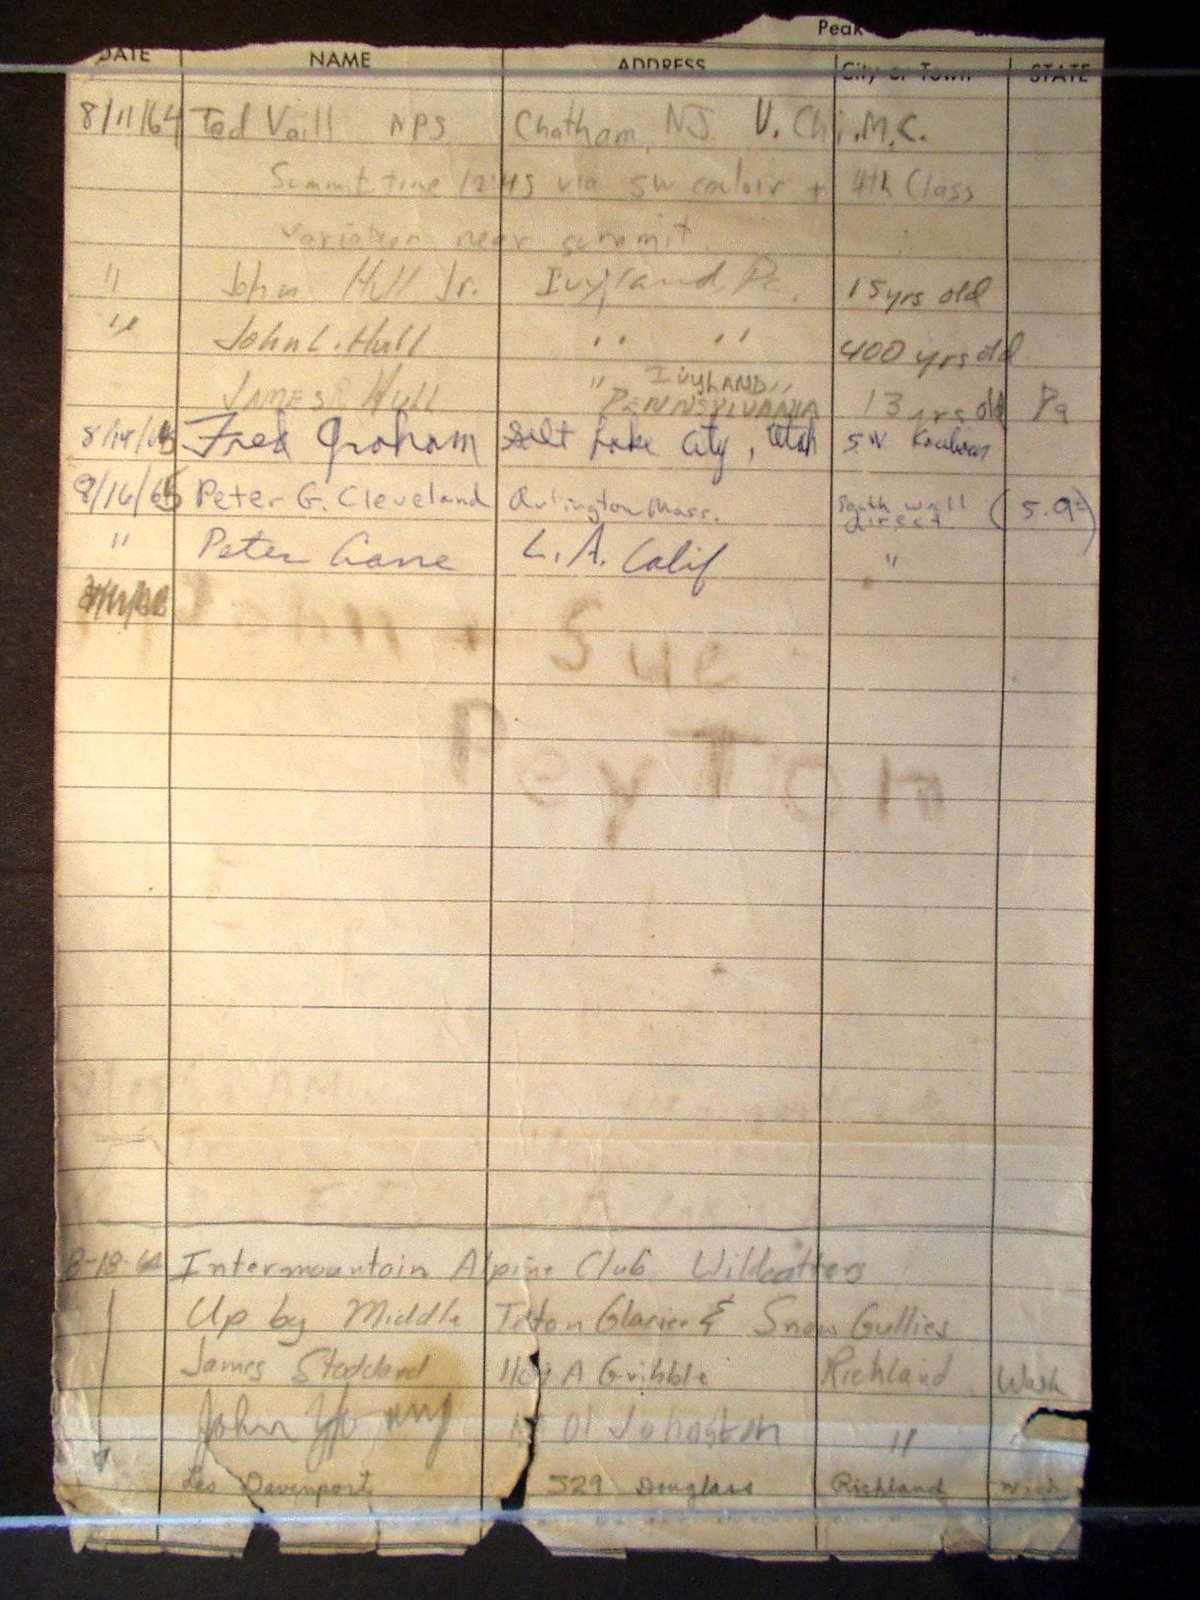 Peak
DATE NAME ADDRESS City or Town STATE
8/11/64 Ted Vaill NPS Chatham, NJ. U. Chi. M.C.
Summit time 12:45 via SW couloir + 4th Class
variation near summit
" John Hull Jr. Ivyland, Pa. 15 yrs old
" John L. Hull " " 400 yrs old
James Hull " IVYLAND " PENNSYLVANIA 13 yrs old Pa
Fred Graham Salt Lake City, Utah SW
8/16/65 Peter G. Cleveland Arlington Mass. South wall direct (5.9)
" Peter L.A. Calif "
+ Sue
PeyTon
8-18-64 Intermountain Alpine Club
Up by Middle Teton Glacier & Snow Gullies
James Stoddard A Gribble Richland Wash
John Young Johnston "
Les Davenport 529 Douglass Richland